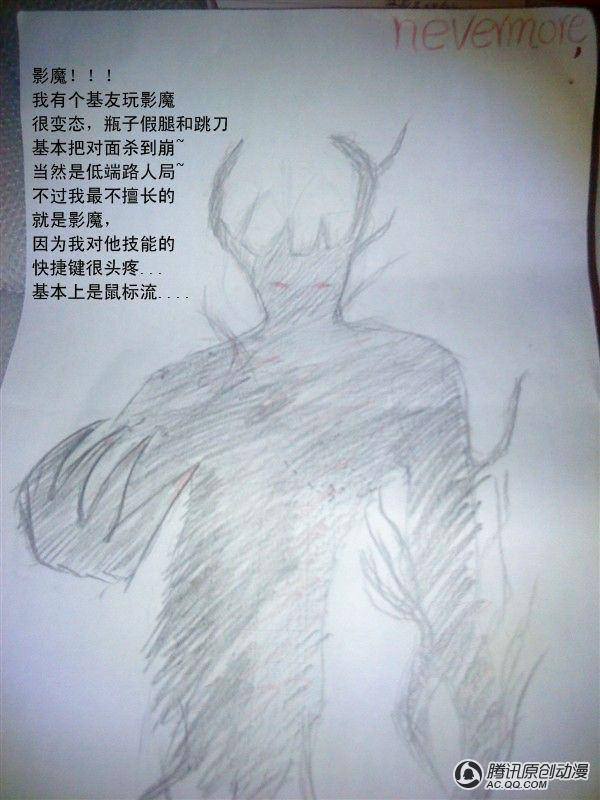 nevermore,
影魔！！！
我有个基友玩影魔
很变态，瓶子假腿和跳刀
基本把对面杀到崩~
当然是低端路人局~
不过我最不擅长的
就是影魔，
因为我对他技能的
快捷键很头疼...
基本上是鼠标流....
腾讯原创动漫
AC.QQ.COM